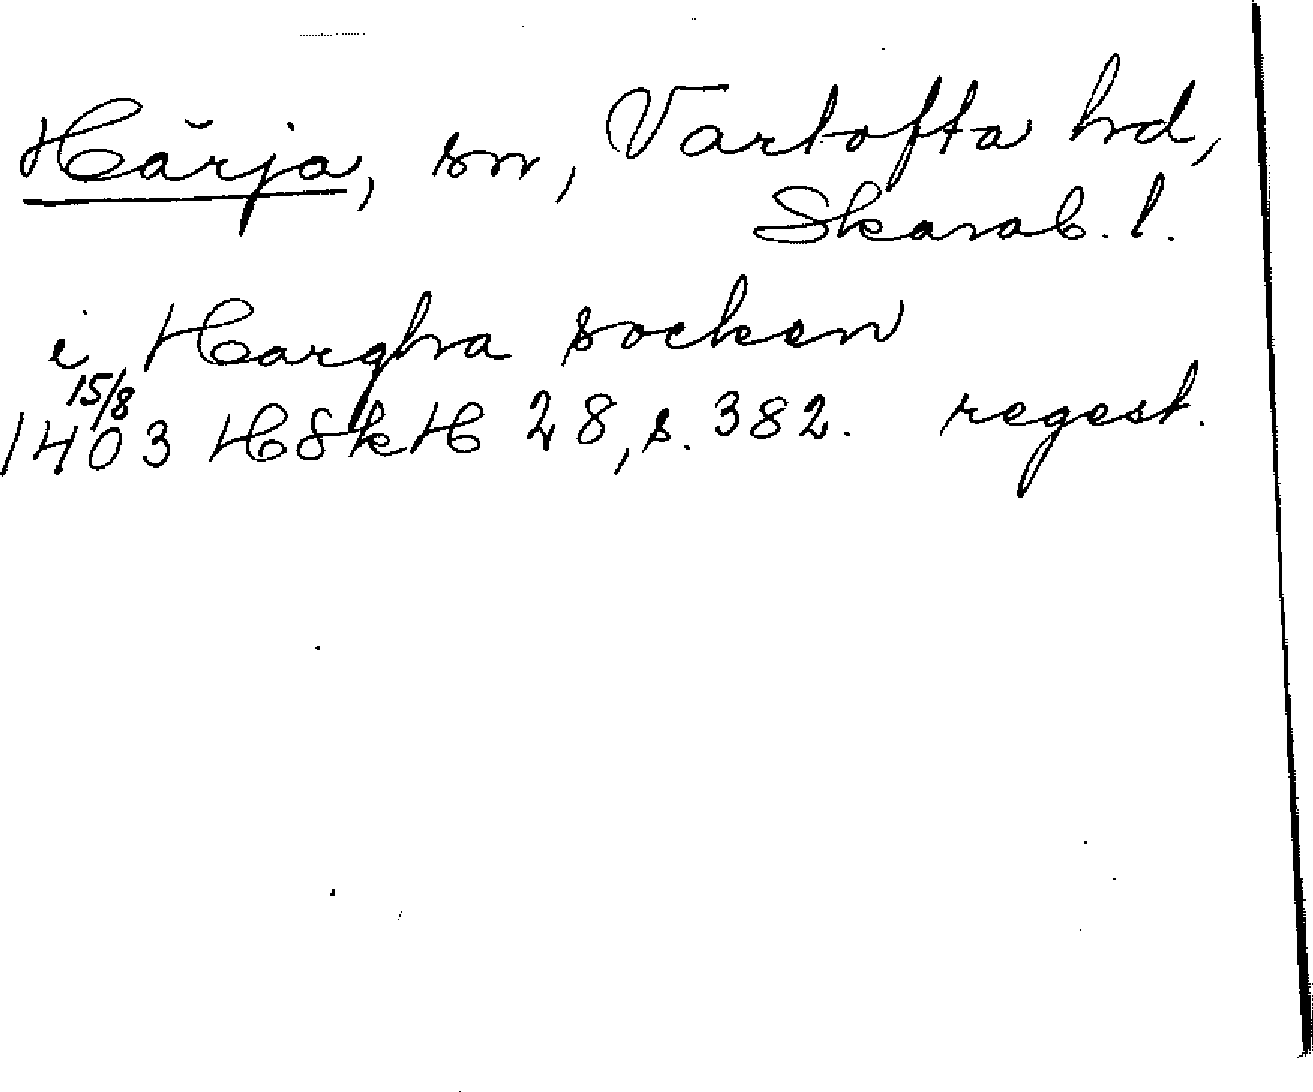 Härja, sn, Vartofta hd,
Skarab. l.
i Hargha socken
15/8
1403 HSkH 28, s. 382. regest.